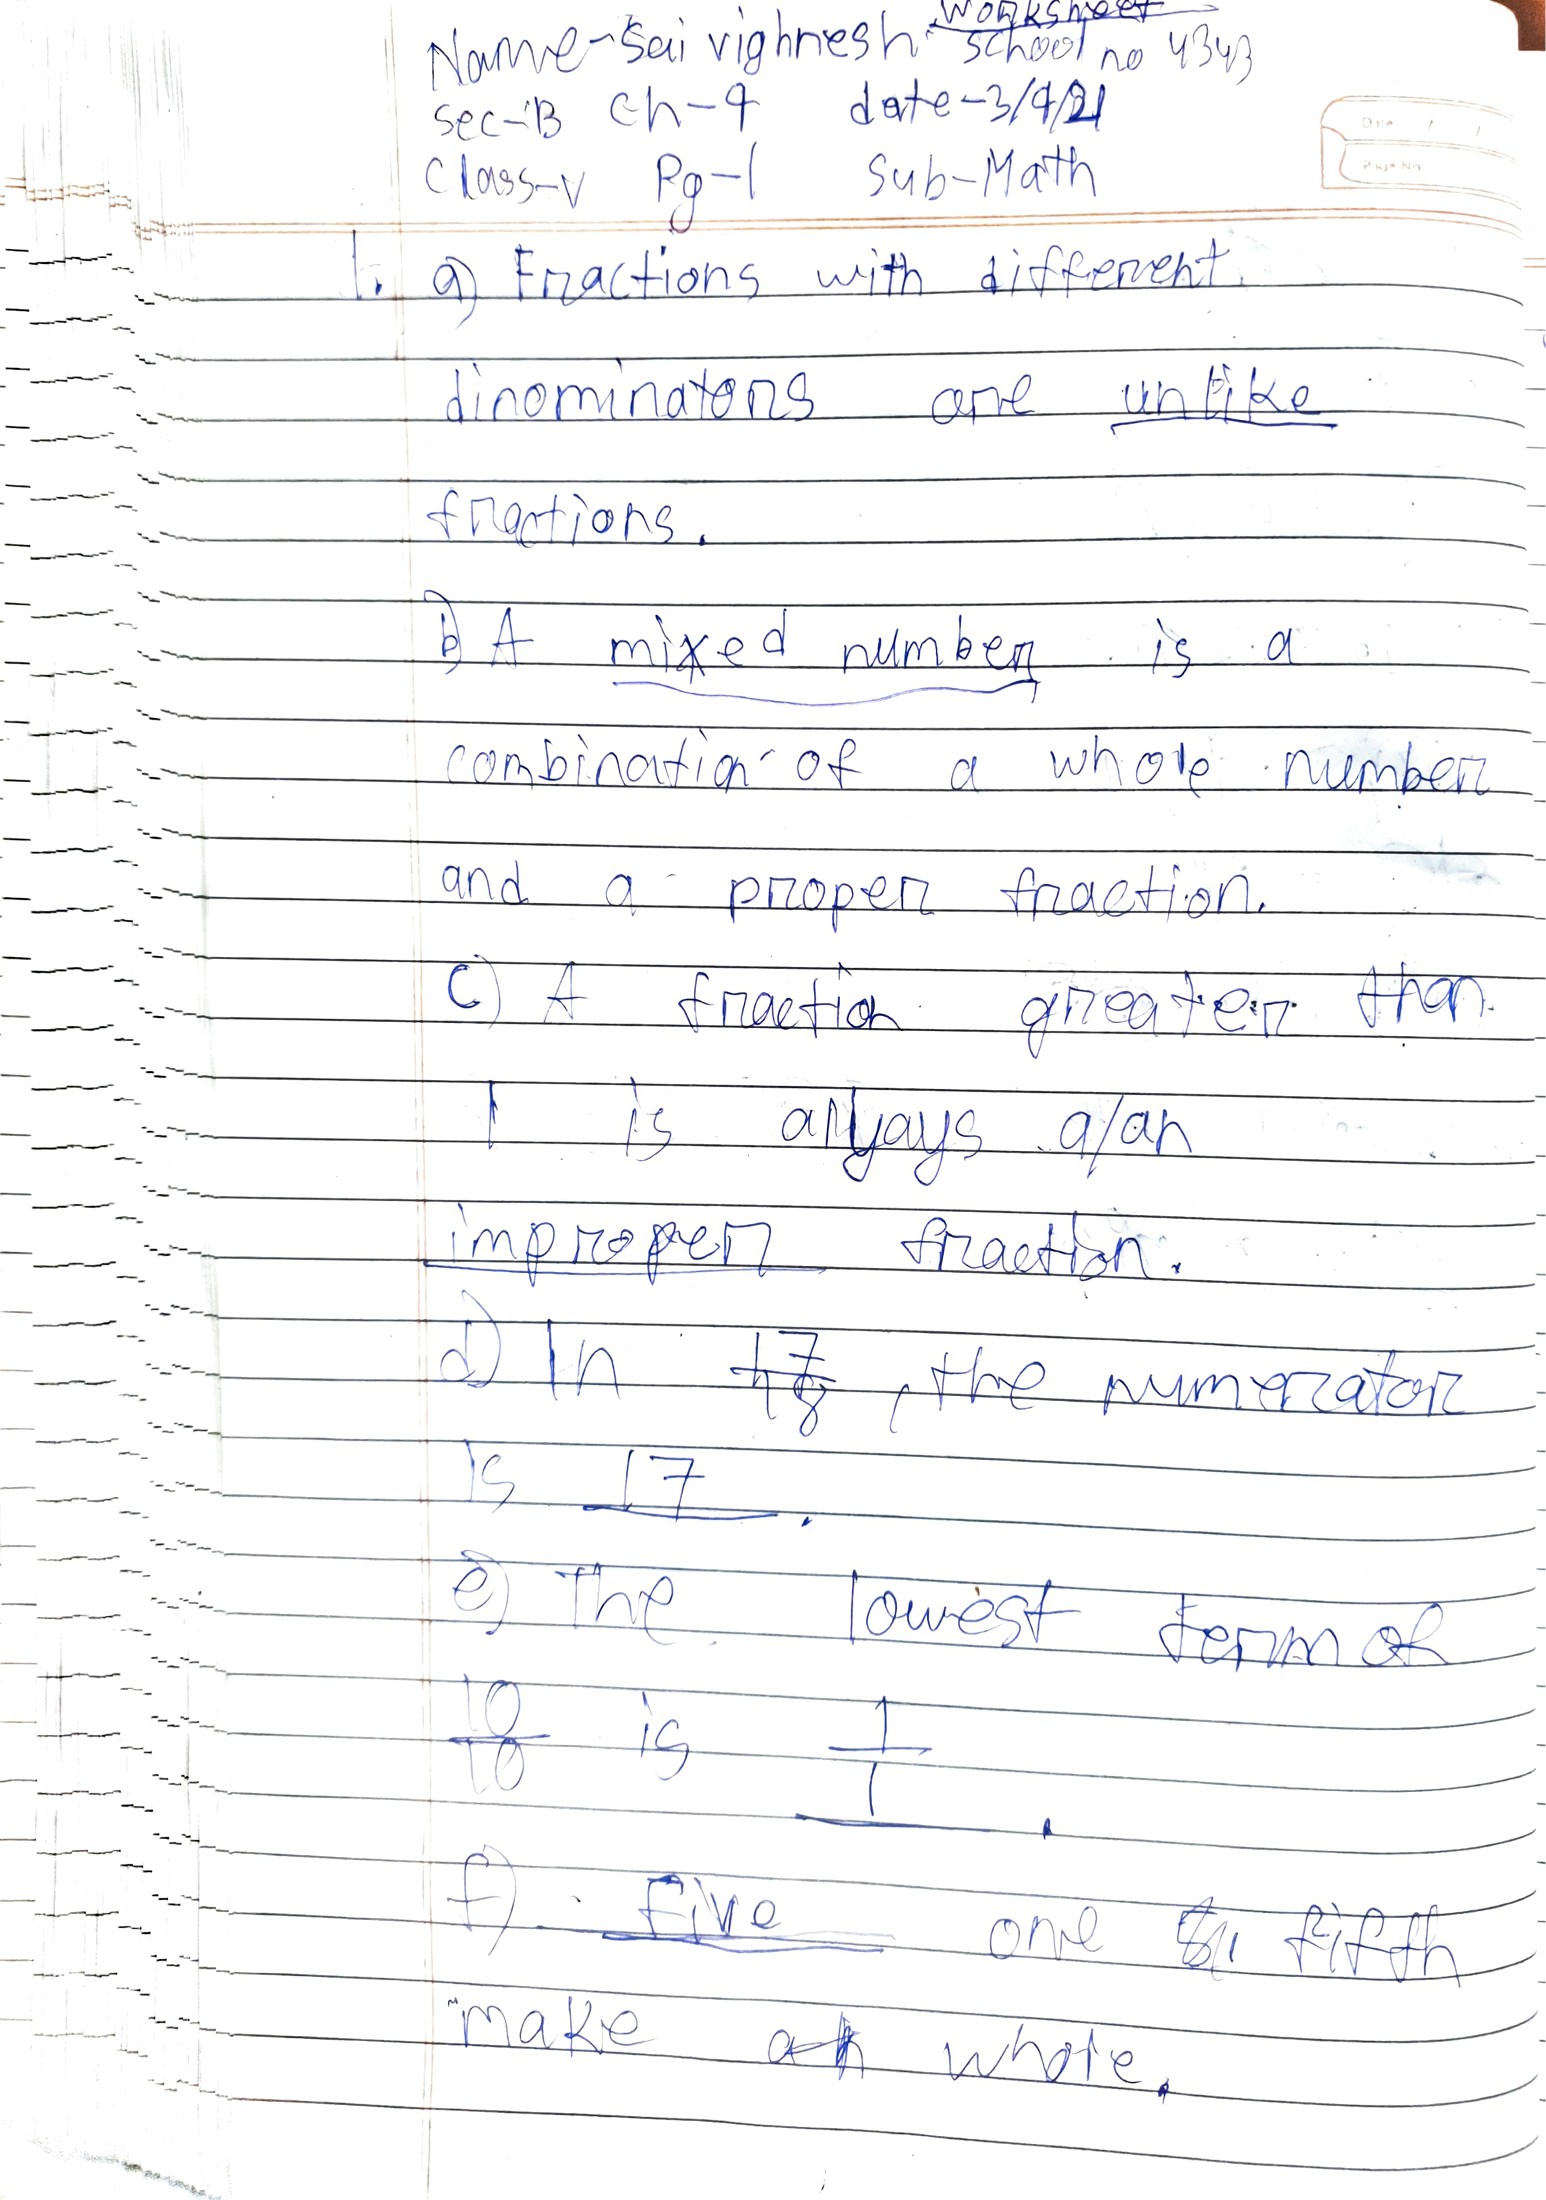 Worksheet
Name-Sai vighnesh School no 4343
Sec-B Ch-4 date-3/4/21
Class-V Pg-1 Sub-Math
Date / /
Page No
1. a) Fractions with different
dinominators are unlike
fractions.
b) A mixed number is a
combination of a whole number
and a proper fraction.
c) A fraction greater than
1 is always a/an
improper fraction.
d) In 17/18, the numerator
is 17.
e) The lowest term of
10/10 is 1/1.
f) Five one fifth
make a whole.